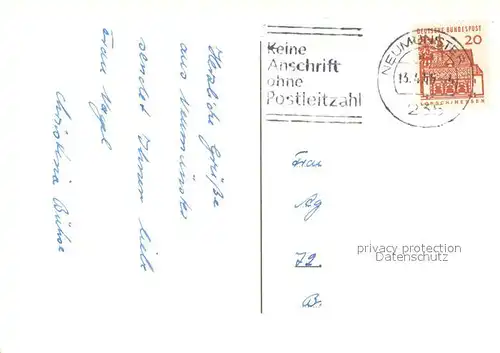 Herzliche Grüße
aus Neumünster
sendet Ihnen liebe
Frau Vogel
Christina
Keine
Anschrift
ohne
Postleitzahl
NEUMÜNSTER
235
DEUTSCHE BUNDESPOST
20
LORSCH/HESSEN
Frau
Ag
72
B.
privacy protection
Datenschutz